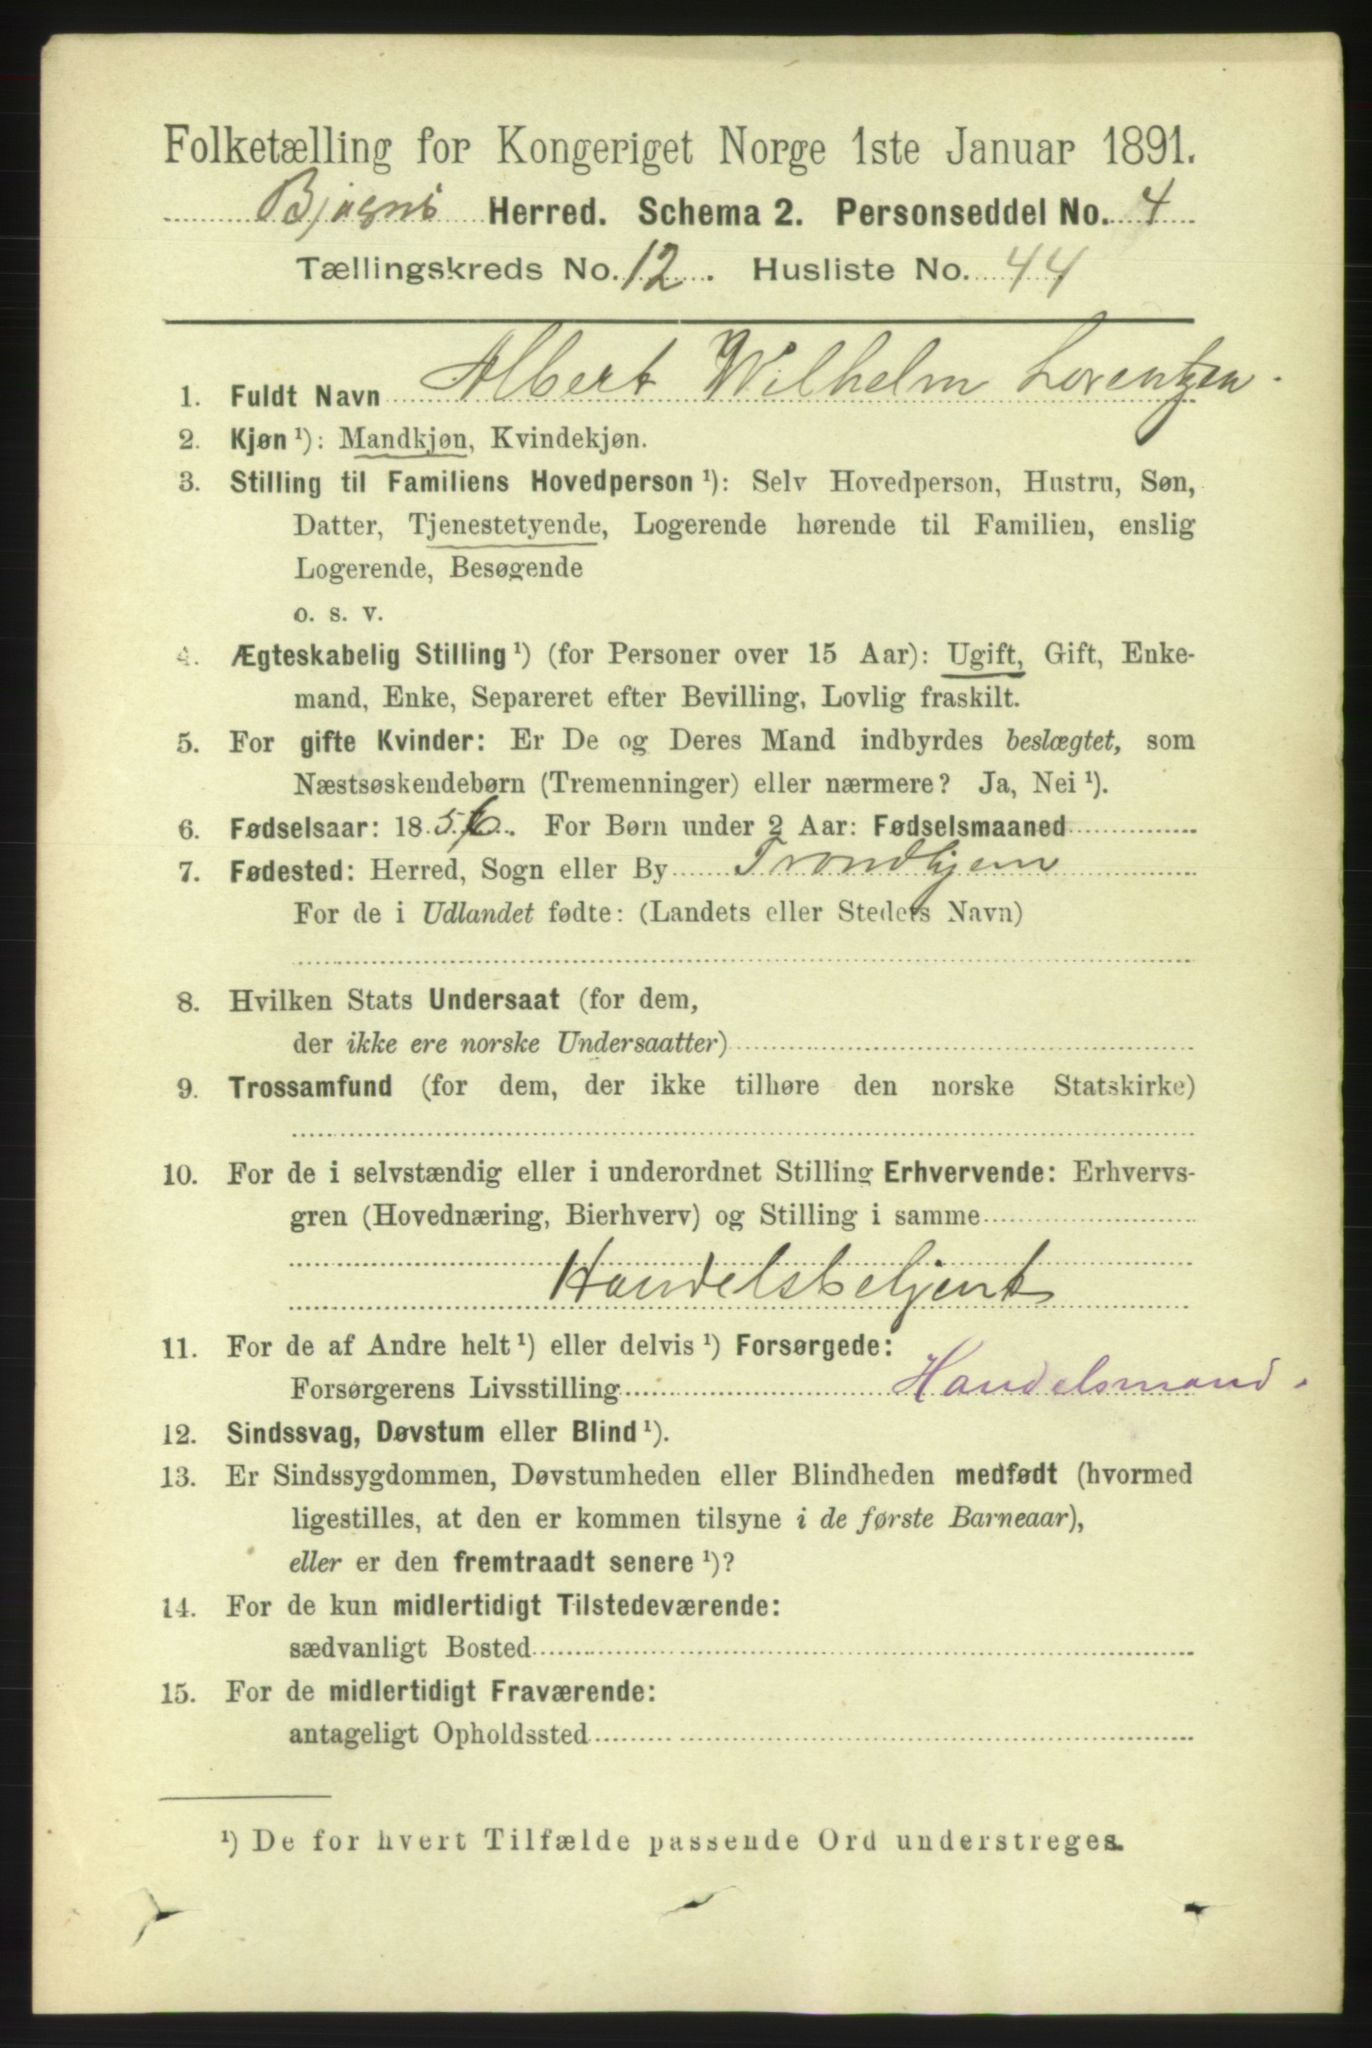 Folketælling for Kongeriget Norge 1ste Januar 1891.
Bjugn Herred. Schema 2. Personseddel No. 4
Tællingskreds No. 12. Husliste No. 44
1. Fuldt Navn Albert Wilhelm Lorentzen.
2. Kjøn ¹): Mandkjøn, Kvindekjøn.
3. Stilling til Familiens Hovedperson ¹): Selv Hovedperson, Hustru, Søn,
Datter, Tjenestetyende, Logerende hørende til Familien, enslig
Logerende, Besøgende
o. s. v.
4. Ægteskabelig Stilling ¹) (for Personer over 15 Aar): Ugift, Gift, Enke-
mand, Enke, Separeret efter Bevilling, Lovlig fraskilt.
5. For gifte Kvinder: Er De og Deres Mand indbyrdes beslægtet, som
Næstsøskendebørn (Tremenninger) eller nærmere? Ja, Nei ¹).
6. Fødselsaar: 1856. For Børn under 2 Aar: Fødselsmaaned
7. Fødested: Herred, Sogn eller By Trondhjem
For de i Udlandet fødte: (Landets eller Stedets Navn)
8. Hvilken Stats Undersaat (for dem,
der ikke ere norske Undersaatter)
9. Trossamfund (for dem, der ikke tilhøre den norske Statskirke)
10. For de i selvstændig eller i underordnet Stilling Erhvervende: Erhvervs-
gren (Hovednæring, Bierhverv) og Stilling i samme
Handelsbetjent
11. For de af Andre helt ¹) eller delvis ¹) Forsørgede:
Forsørgerens Livsstilling Handelsmand.
12. Sindssvag, Døvstum eller Blind ¹).
13. Er Sindssygdommen, Døvstumheden eller Blindheden medfødt (hvormed
ligestilles, at den er kommen tilsyne i de første Barneaar),
eller er den fremtraadt senere ¹)?
14. For de kun midlertidigt Tilstedeværende:
sædvanligt Bosted
15. For de midlertidigt Fraværende:
antageligt Opholdssted
¹) De for hvert Tilfælde passende Ord understreges.